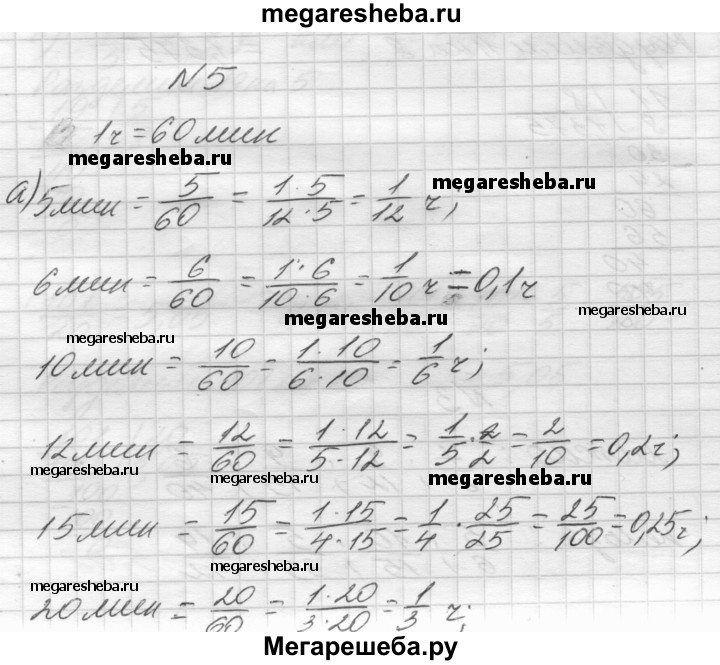 megaresheba.ru
N5
1ч = 60 мин
megaresheba.ru
а) 5 мин = 5/60 = 1·5/12·5 = 1/12 ч; megaresheba.ru
6 мин = 6/60 = 1·6/10·6 = 1/10 ч = 0,1 ч
megaresheba.ru megaresheba.ru megaresheba.ru
10 мин = 10/60 = 1·10/6·10 = 1/6 ч;
12 мин = 12/60 = 1·12/5·12 = 1/5 · 2/2 = 2/10 = 0,2 ч;
megaresheba.ru megaresheba.ru
15 мин = 15/60 = 1·15/4·15 = 1/4 · 25/25 = 25/100 = 0,25 ч;
megaresheba.ru
20 мин = 20/60 = 1·20/3·20 = 1/3 ч;
Мегарешеба.ру